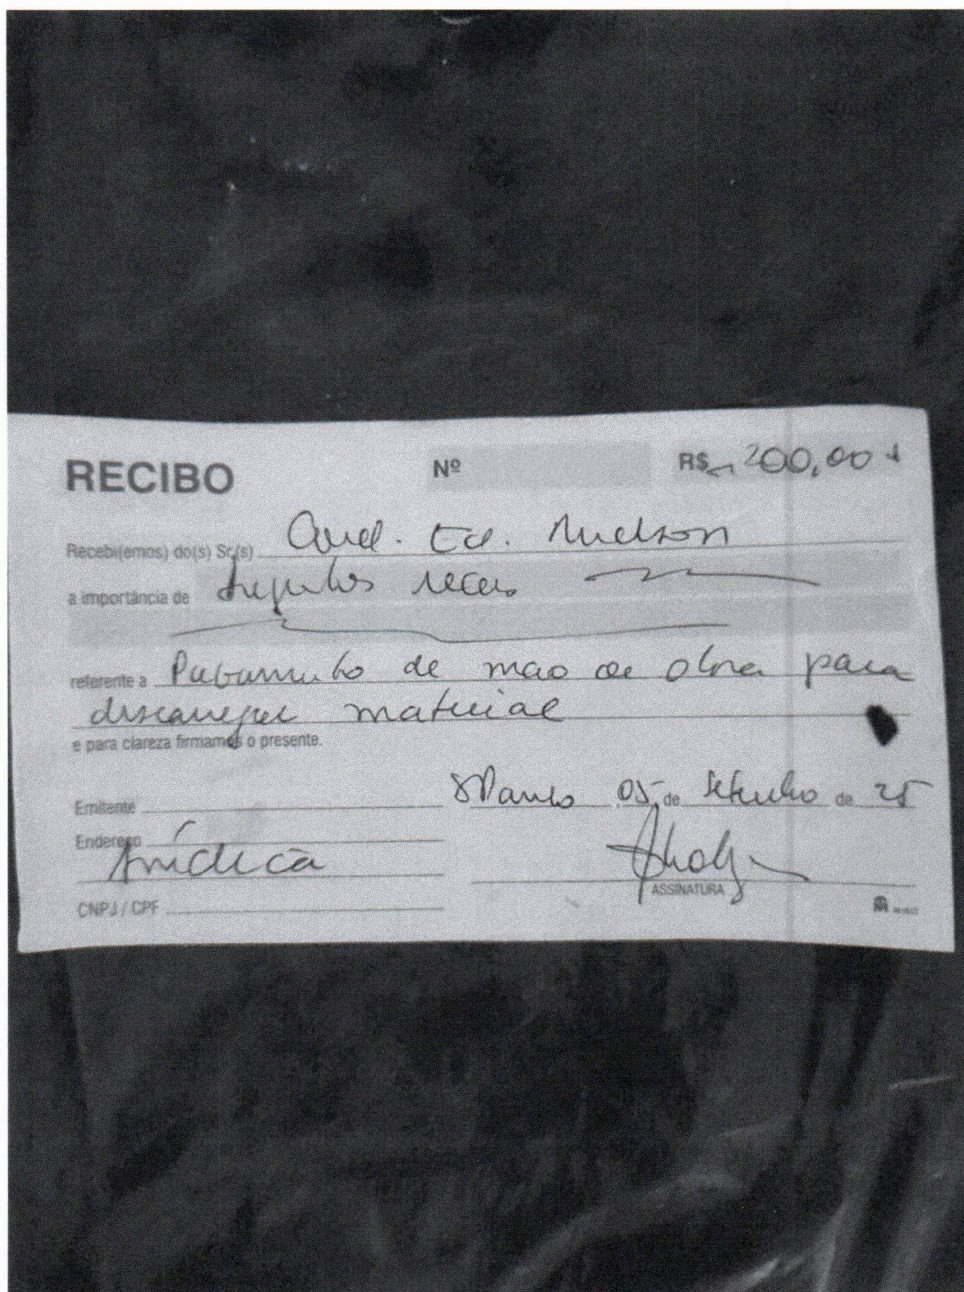 RECIBO Nº R$ 200,00
Recebi(emos) do(s) Sr.(s) Cond. Ed. Nielson
a importância de duzentos reais
referente a Pagamento de mao de obra para
descarregar material
e para clareza firmamos o presente.
Emitente SPaulo 05 de Setembro de 25
Endereço
Síndica
ASSINATURA
CNPJ / CPF